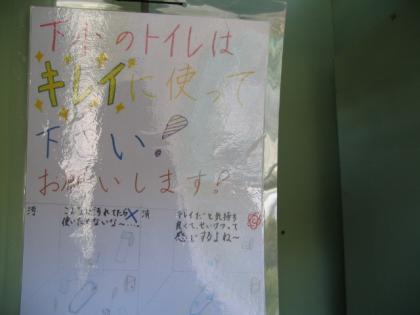 下北のトイレは
キレイに使って
下さい!
お願いします!
こんなに汚れてたら
使いたくないな〜…
キレイだと気持ち
良くて、せいけつって
感じするよね〜